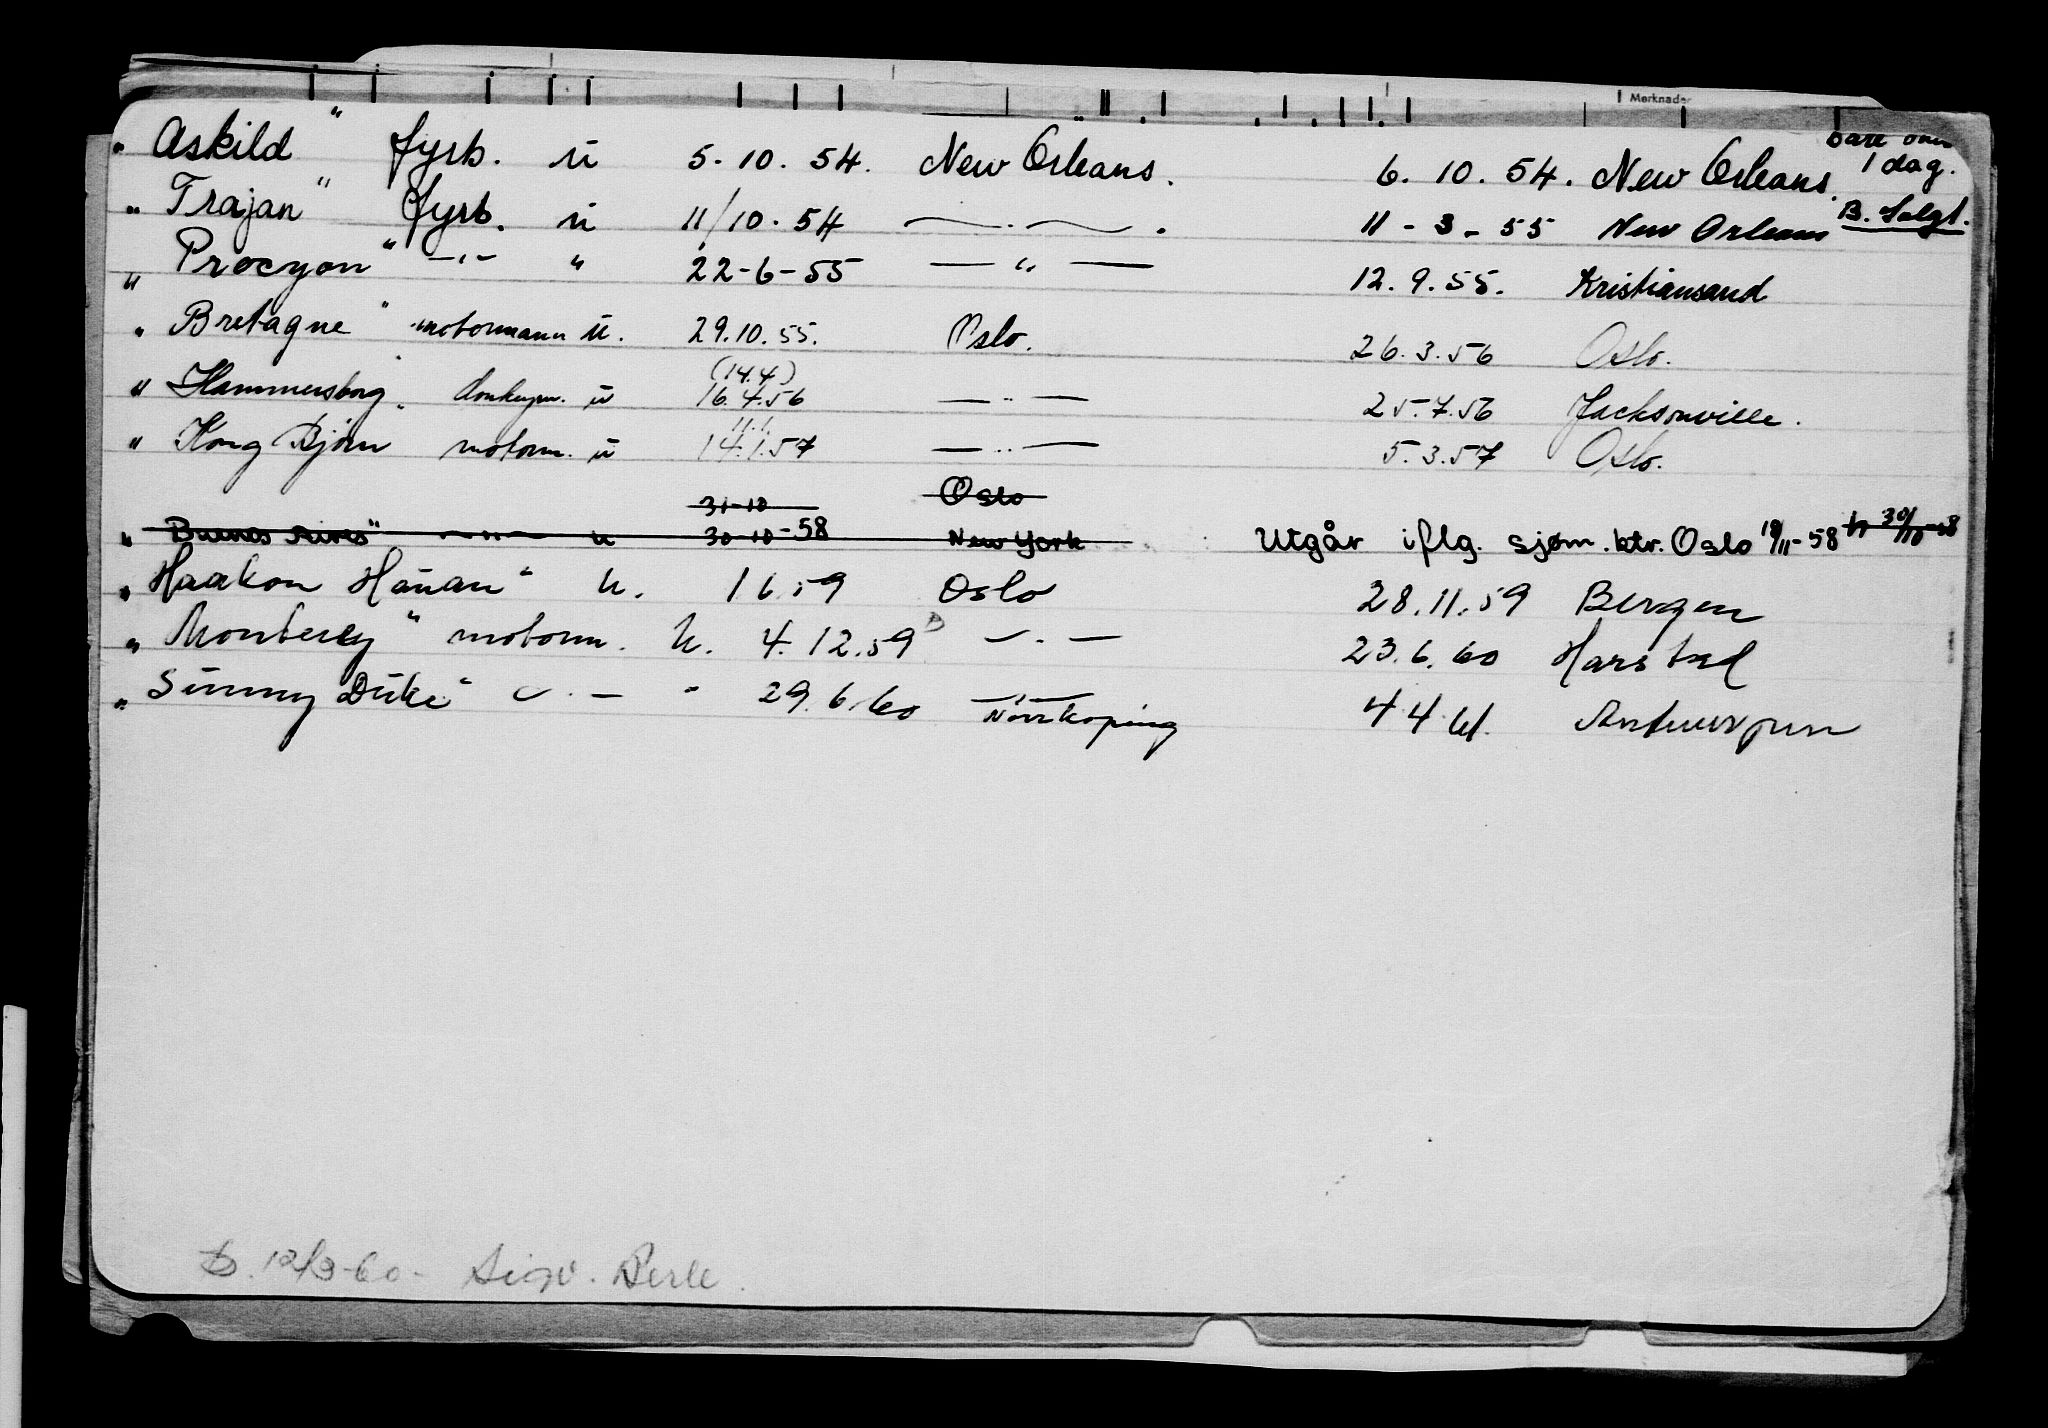 Merknader
" Askild " fyrb. ü 5.10.54. New Orleans. 6.10.54. New Orleans. bare om 1 dag.
" Trajan " fyrb. ü 11/10.54 — . — . 11-3-55 New Orleans B. Solgt.
" Procyon " -"- " 22-6-55 — " — 12.9.55. Kristiansand
" Bretagne " motormann ü. 29.10.55. Oslo. 26.3.56 Oslo.
(14.4)
" Hammersborg " donkeym. ü 16.4.56 — " — 25.7.56 Jacksonville.
11.1.
" Kong Bjørn motorm. ü 14.1.57 — " — 5.3.57 Oslo.
31-10 Oslo
" Buenos Aires" — " — u 30-10-58 New York Utgår iflg. sjøm. ktr. Oslo 19/11-58
" Haakon Hauan " u. 1 6 59 Oslo 28.11.59 Bergen
" Monterey " motorm. u. 4.12.59 — . — 23.6.60 Harstad
" Sunny Duke " — . — " 29.6.60 Norrkoping 4 4 61. Antwerpen
D. 12/3-60- Sigv. Berle.